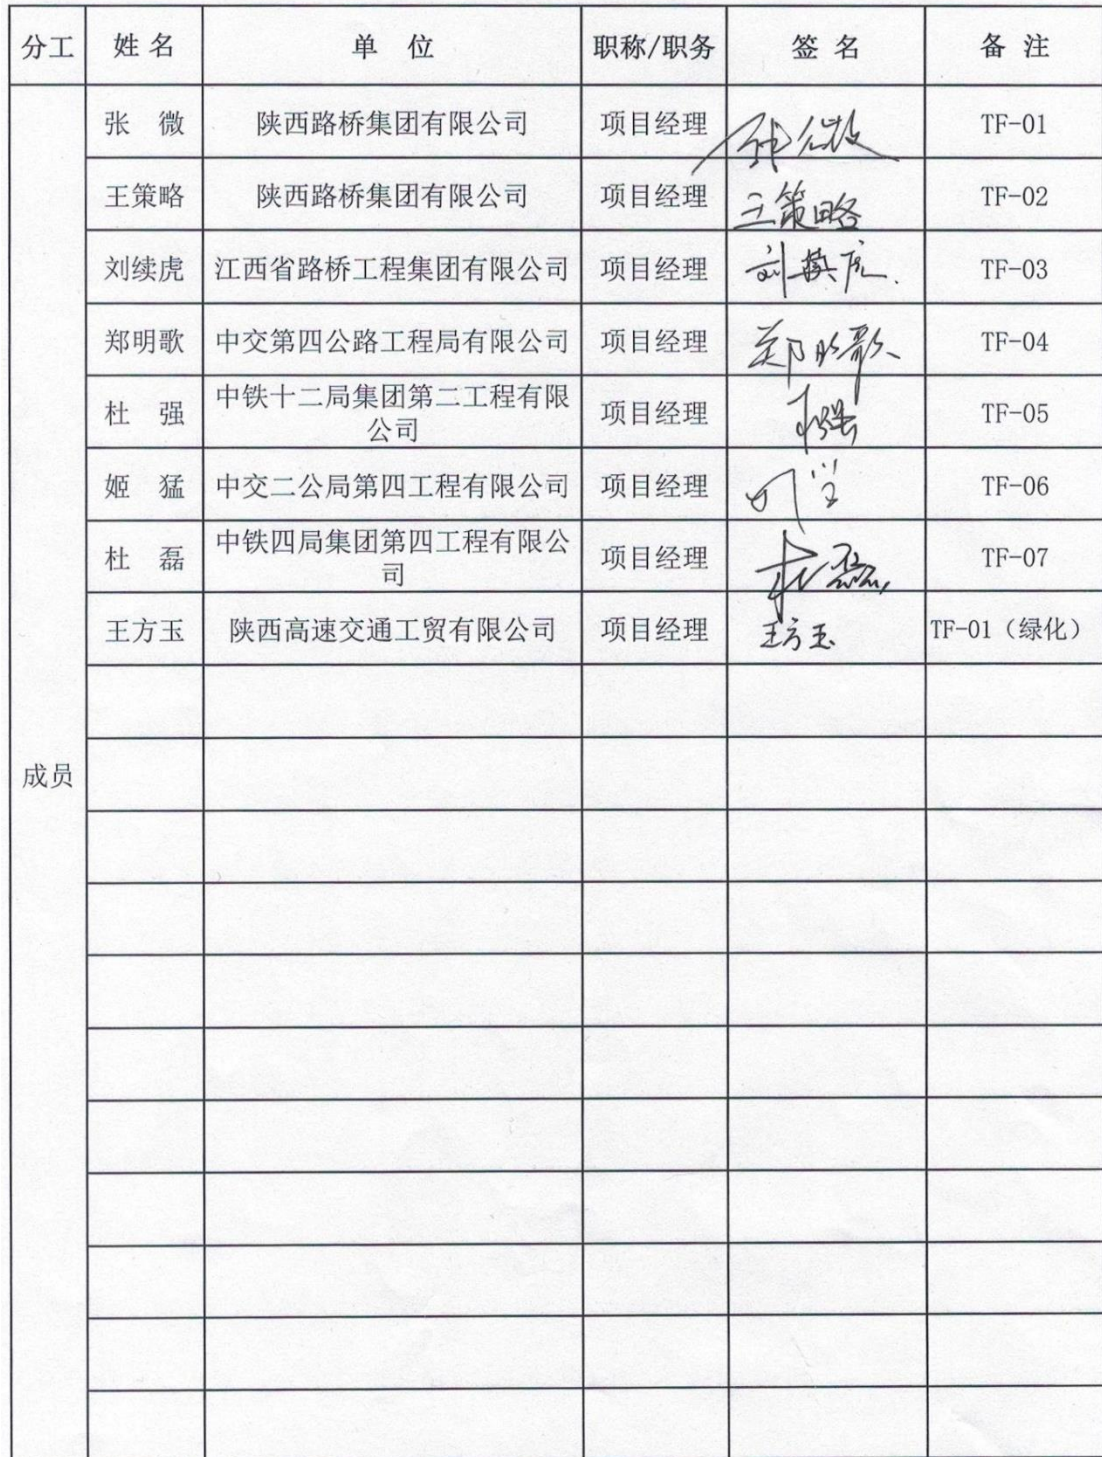 分工 姓名 单位 职称/职务 签名 备注
成员
张微 陕西路桥集团有限公司 项目经理 张微 TF-01
王策略 陕西路桥集团有限公司 项目经理 王策略 TF-02
刘续虎 江西省路桥工程集团有限公司 项目经理 刘续虎 TF-03
郑明歌 中交第四公路工程局有限公司 项目经理 郑明歌 TF-04
杜强 中铁十二局集团第二工程有限
公司 项目经理 杜强 TF-05
姬猛 中交二公局第四工程有限公司 项目经理 TF-06
杜磊 中铁四局集团第四工程有限公
司 项目经理 杜磊 TF-07
王方玉 陕西高速交通工贸有限公司 项目经理 王方玉 TF-01（绿化）